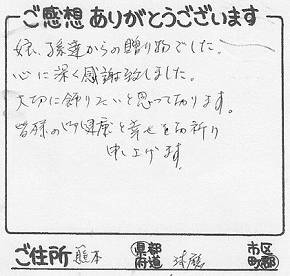 ご感想ありがとうございます
娘、孫達からの贈り物でした。
心に深く感謝致しました。
大切に飾りたいと思って居ります。
皆様の御健康と幸せをお祈り
申し上げます。
ご住所 熊本 都道府県 球磨 市区町郡